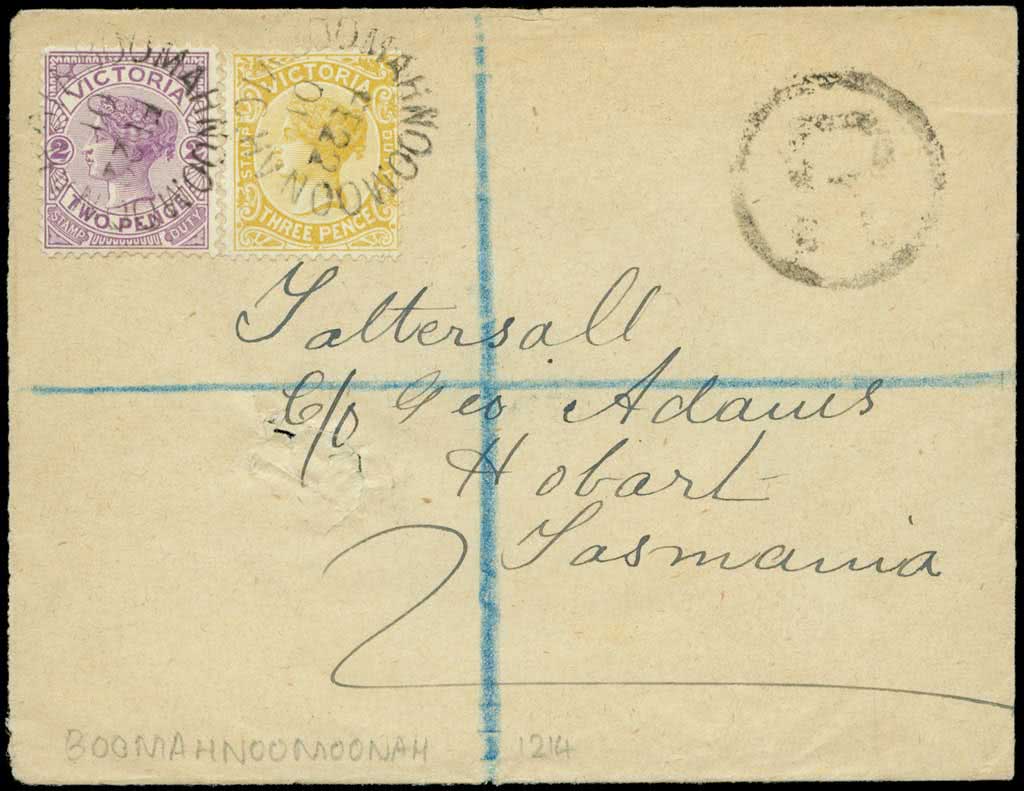 VICTORIA
2 2
TWO PENCE
STAMP DUTY
VICTORIA
STAMP DUTY
THREE PENCE
Tattersall
C/o Geo Adams
Hobart
Tasmania
BOOMAHNOOMOONAH 1214